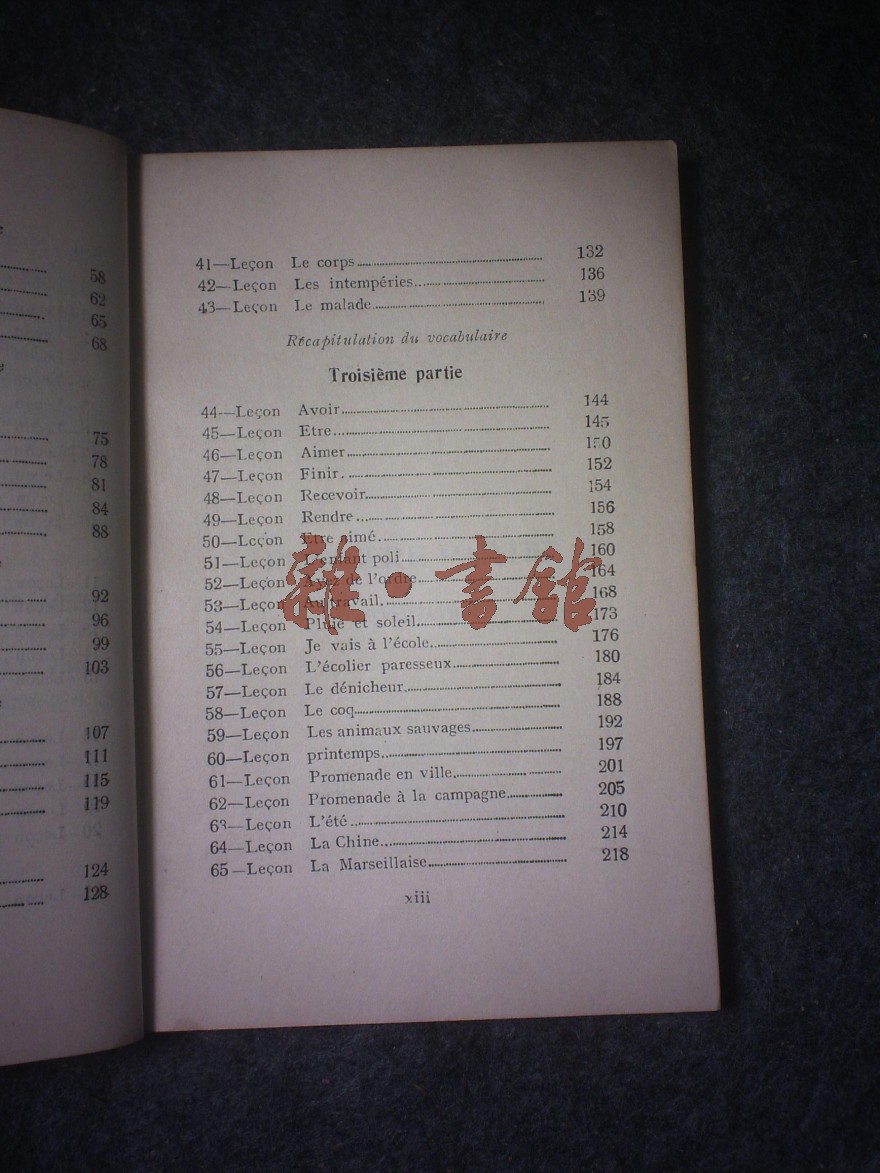 58
62
65
68
75
78
81
84
88
92
96
99
103
107
111
115
119
124
128
41—Leçon Le corps 132
42—Leçon Les intempéries 136
43—Leçon Le malade 139
Récapitulation du vocabulaire
Troisième partie
44—Leçon Avoir 144
45—Leçon Etre 145
46—Leçon Aimer 150
47—Leçon Finir 152
48—Leçon Recevoir 154
49—Leçon Rendre 156
50—Leçon Etre aimé 158
51—Leçon L'enfant poli 160
52—Leçon Ayez de l'ordre 164
53—Leçon Au travail 168
54—Leçon Pluie et soleil 173
55—Leçon Je vais à l'école 176
56—Leçon L'écolier paresseux 180
57—Leçon Le dénicheur 184
58—Leçon Le coq 188
59—Leçon Les animaux sauvages 192
60—Leçon printemps 197
61—Leçon Promenade en ville 201
62—Leçon Promenade à la campagne 205
63—Leçon L'été 210
64—Leçon La Chine 214
65—Leçon La Marseillaise 218
xiii
雜·書館